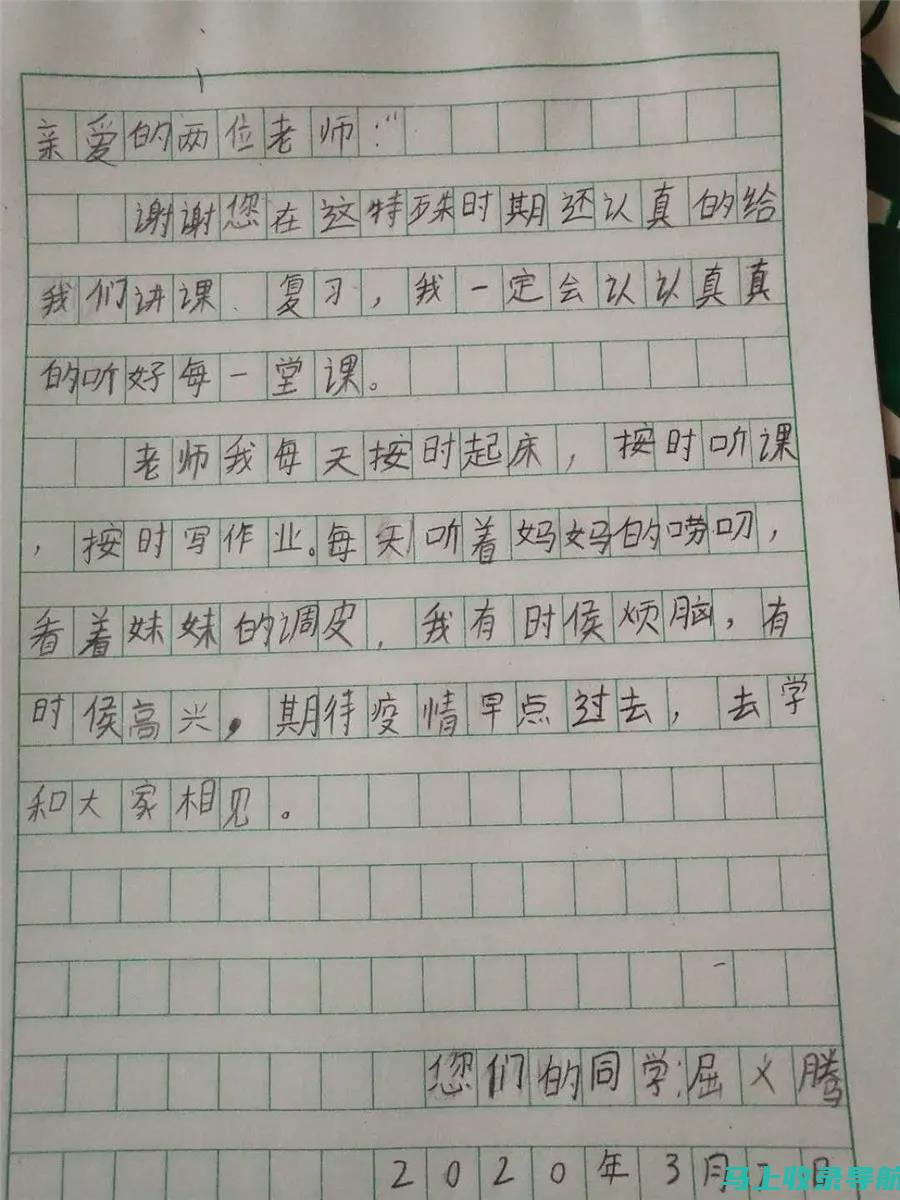 亲爱的两位老师：“
谢谢您在这特殊时期还认真的给
我们讲课、复习，我一定会认认真真
的听好每一堂课。
老师我每天按时起床，按时听课
，按时写作业。每天听着妈妈的唠叨，
看着妹妹的调皮，我有时侯烦脑，有
时侯高兴，期待疫情早点过去，去学
和大家相见。
您们的同学：屈义腾
2020年3月 日
马上收录导航